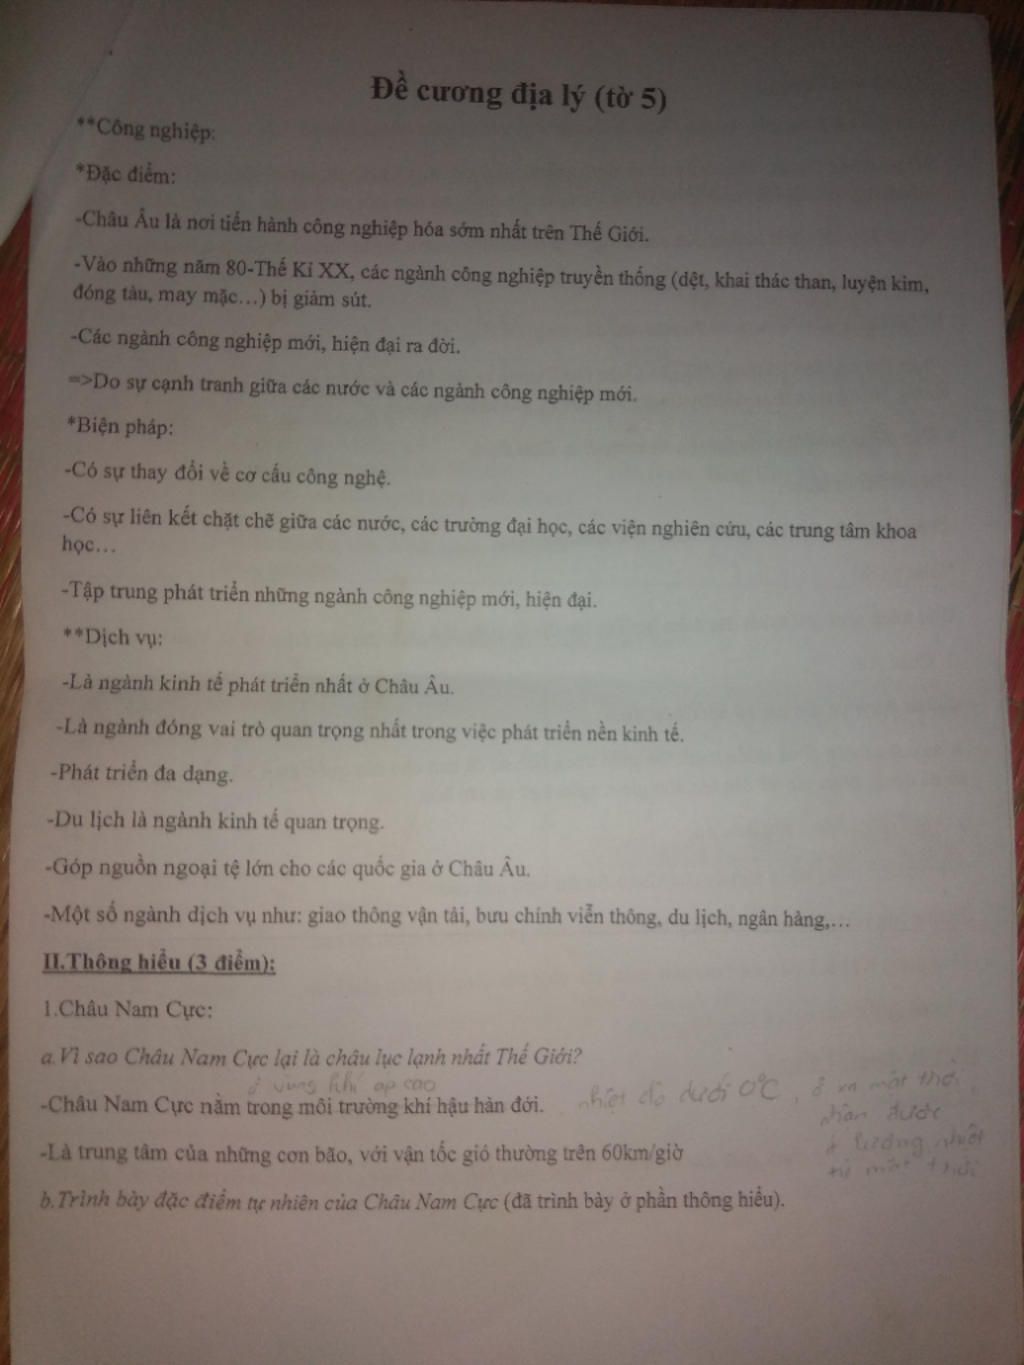 Đề cương địa lý (tờ 5)
**Công nghiệp:
*Đặc điểm:
-Châu Âu là nơi tiến hành công nghiệp hóa sớm nhất trên Thế Giới.
-Vào những năm 80-Thế Kỉ XX, các ngành công nghiệp truyền thống (dệt, khai thác than, luyện kim,
đóng tàu, may mặc...) bị giảm sút.
-Các ngành công nghiệp mới, hiện đại ra đời.
=>Do sự cạnh tranh giữa các nước và các ngành công nghiệp mới.
*Biện pháp:
-Có sự thay đổi về cơ cấu công nghệ.
-Có sự liên kết chặt chẽ giữa các nước, các trường đại học, các viện nghiên cứu, các trung tâm khoa
học...
-Tập trung phát triển những ngành công nghiệp mới, hiện đại.
**Dịch vụ:
-Là ngành kinh tế phát triển nhất ở Châu Âu.
-Là ngành đóng vai trò quan trọng nhất trong việc phát triển nền kinh tế.
-Phát triển đa dạng.
-Du lịch là ngành kinh tế quan trọng.
-Góp nguồn ngoại tệ lớn cho các quốc gia ở Châu Âu.
-Một số ngành dịch vụ như: giao thông vận tải, bưu chính viễn thông, du lịch, ngân hàng,...
II.Thông hiểu (3 điểm):
1.Châu Nam Cực:
a.Vì sao Châu Nam Cực lại là châu lục lạnh nhất Thế Giới?
ở vùng khí áp cao
-Châu Nam Cực nằm trong môi trường khí hậu hàn đới. nhiệt độ dưới 0°C, ở xa mặt trời
nhận được
ít lượng nhiệt
từ mặt trời
-Là trung tâm của những cơn bão, với vận tốc gió thường trên 60km/giờ
b.Trình bày đặc điểm tự nhiên của Châu Nam Cực (đã trình bày ở phần thông hiểu).